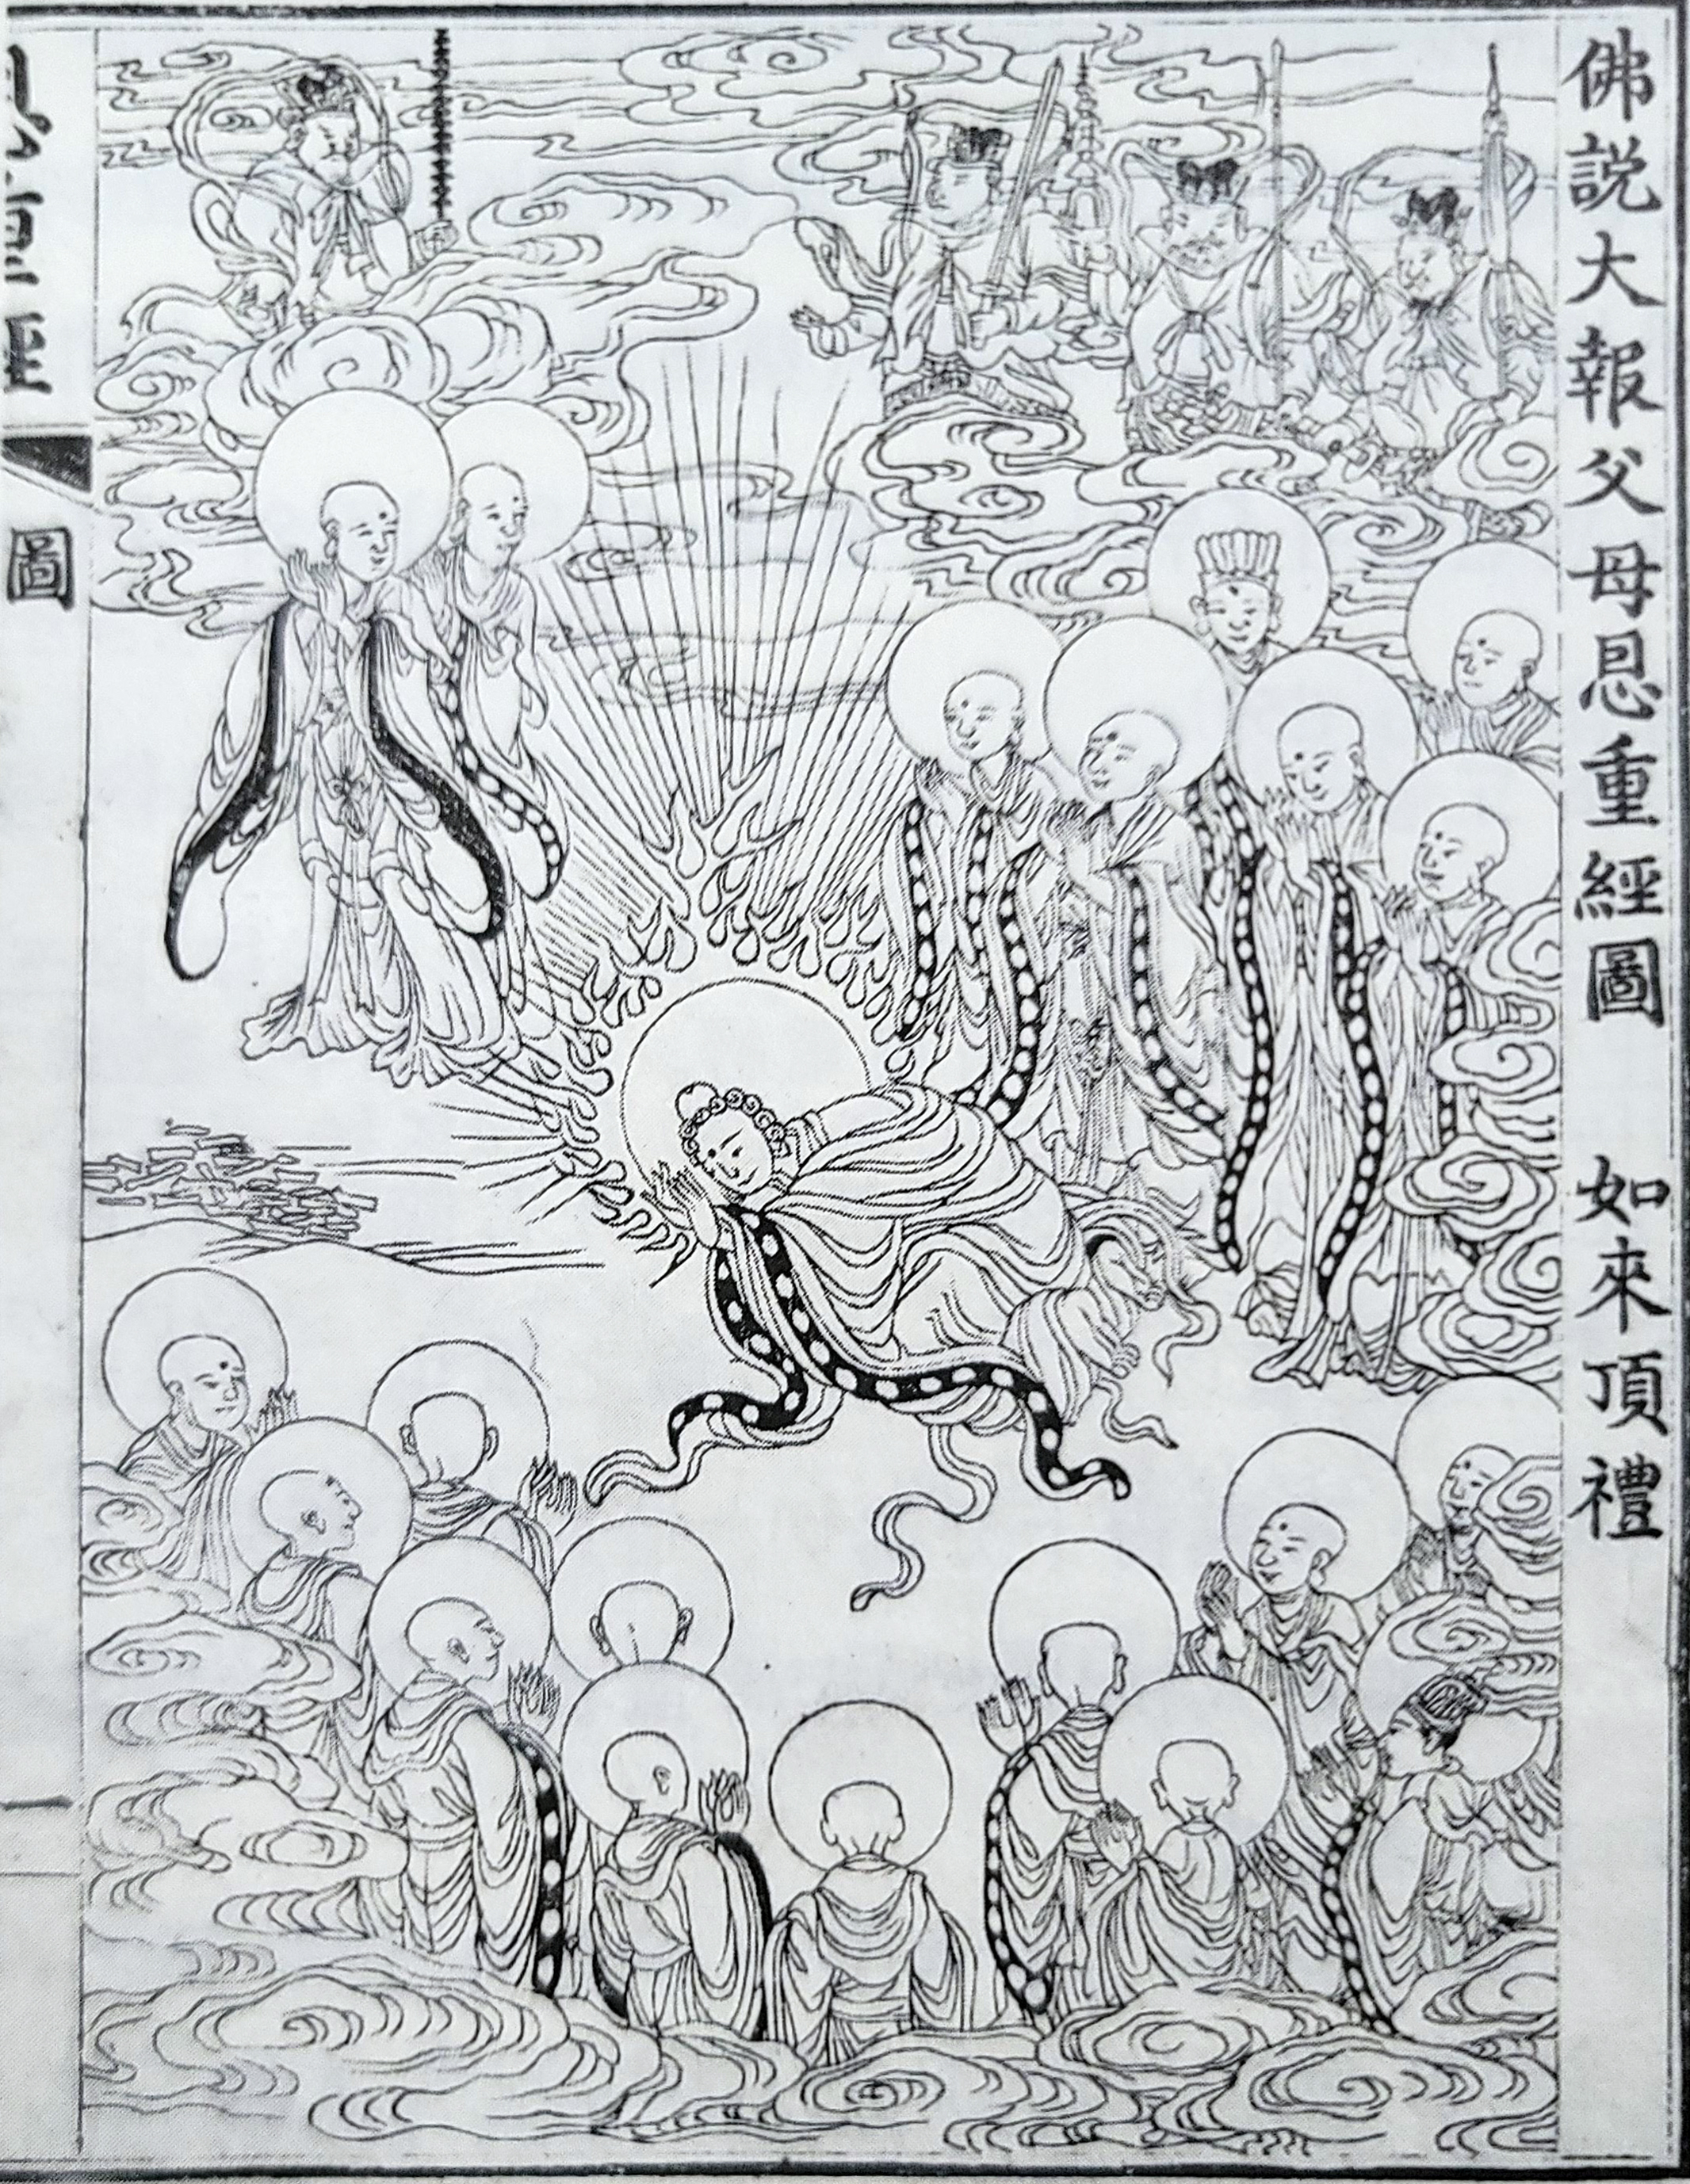 佛説大報父母恩重經圖　如來頂禮
圖
一